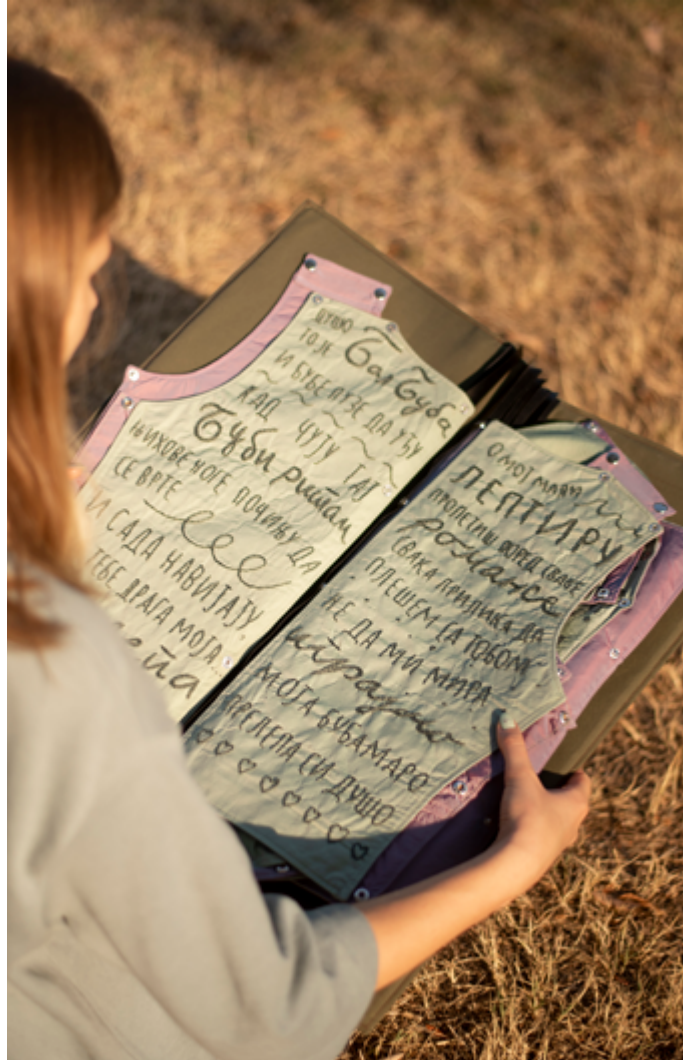 ДУШО
ТО ЈЕ Бал Буба
И БУБЕ ДА УЂУ
КАД ЧУЈУ ТАЈ
Буби ритам
ЊИХОВЕ НОГЕ ПОЧИЊУ ДА
СЕ ВРТЕ
И САДА НАВИЈАЈУ
ТЕБЕ ДРАГА МОЈА...
О МОЈ МЛАДИ
ЛЕПТИРУ
ПРОЛЕТИШ ПОРЕД СВАКЕ
романсе
СВАКА ПРИЛИКА ДА
ПЛЕШЕМ СА ТОБОМ
НЕ ДА МИ МИРА
МОЈА БУБАМАРО
ПРЕЛЕПА СИ ДУШО